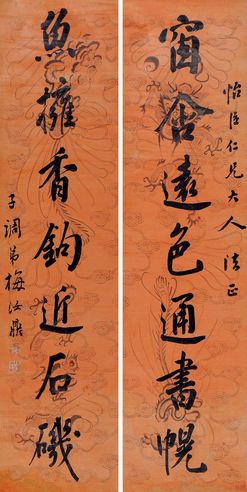 怡臣仁兄大人法正
窗含遠色通書幌
魚擁香鉤近石磯
子調弟梅汝鼎